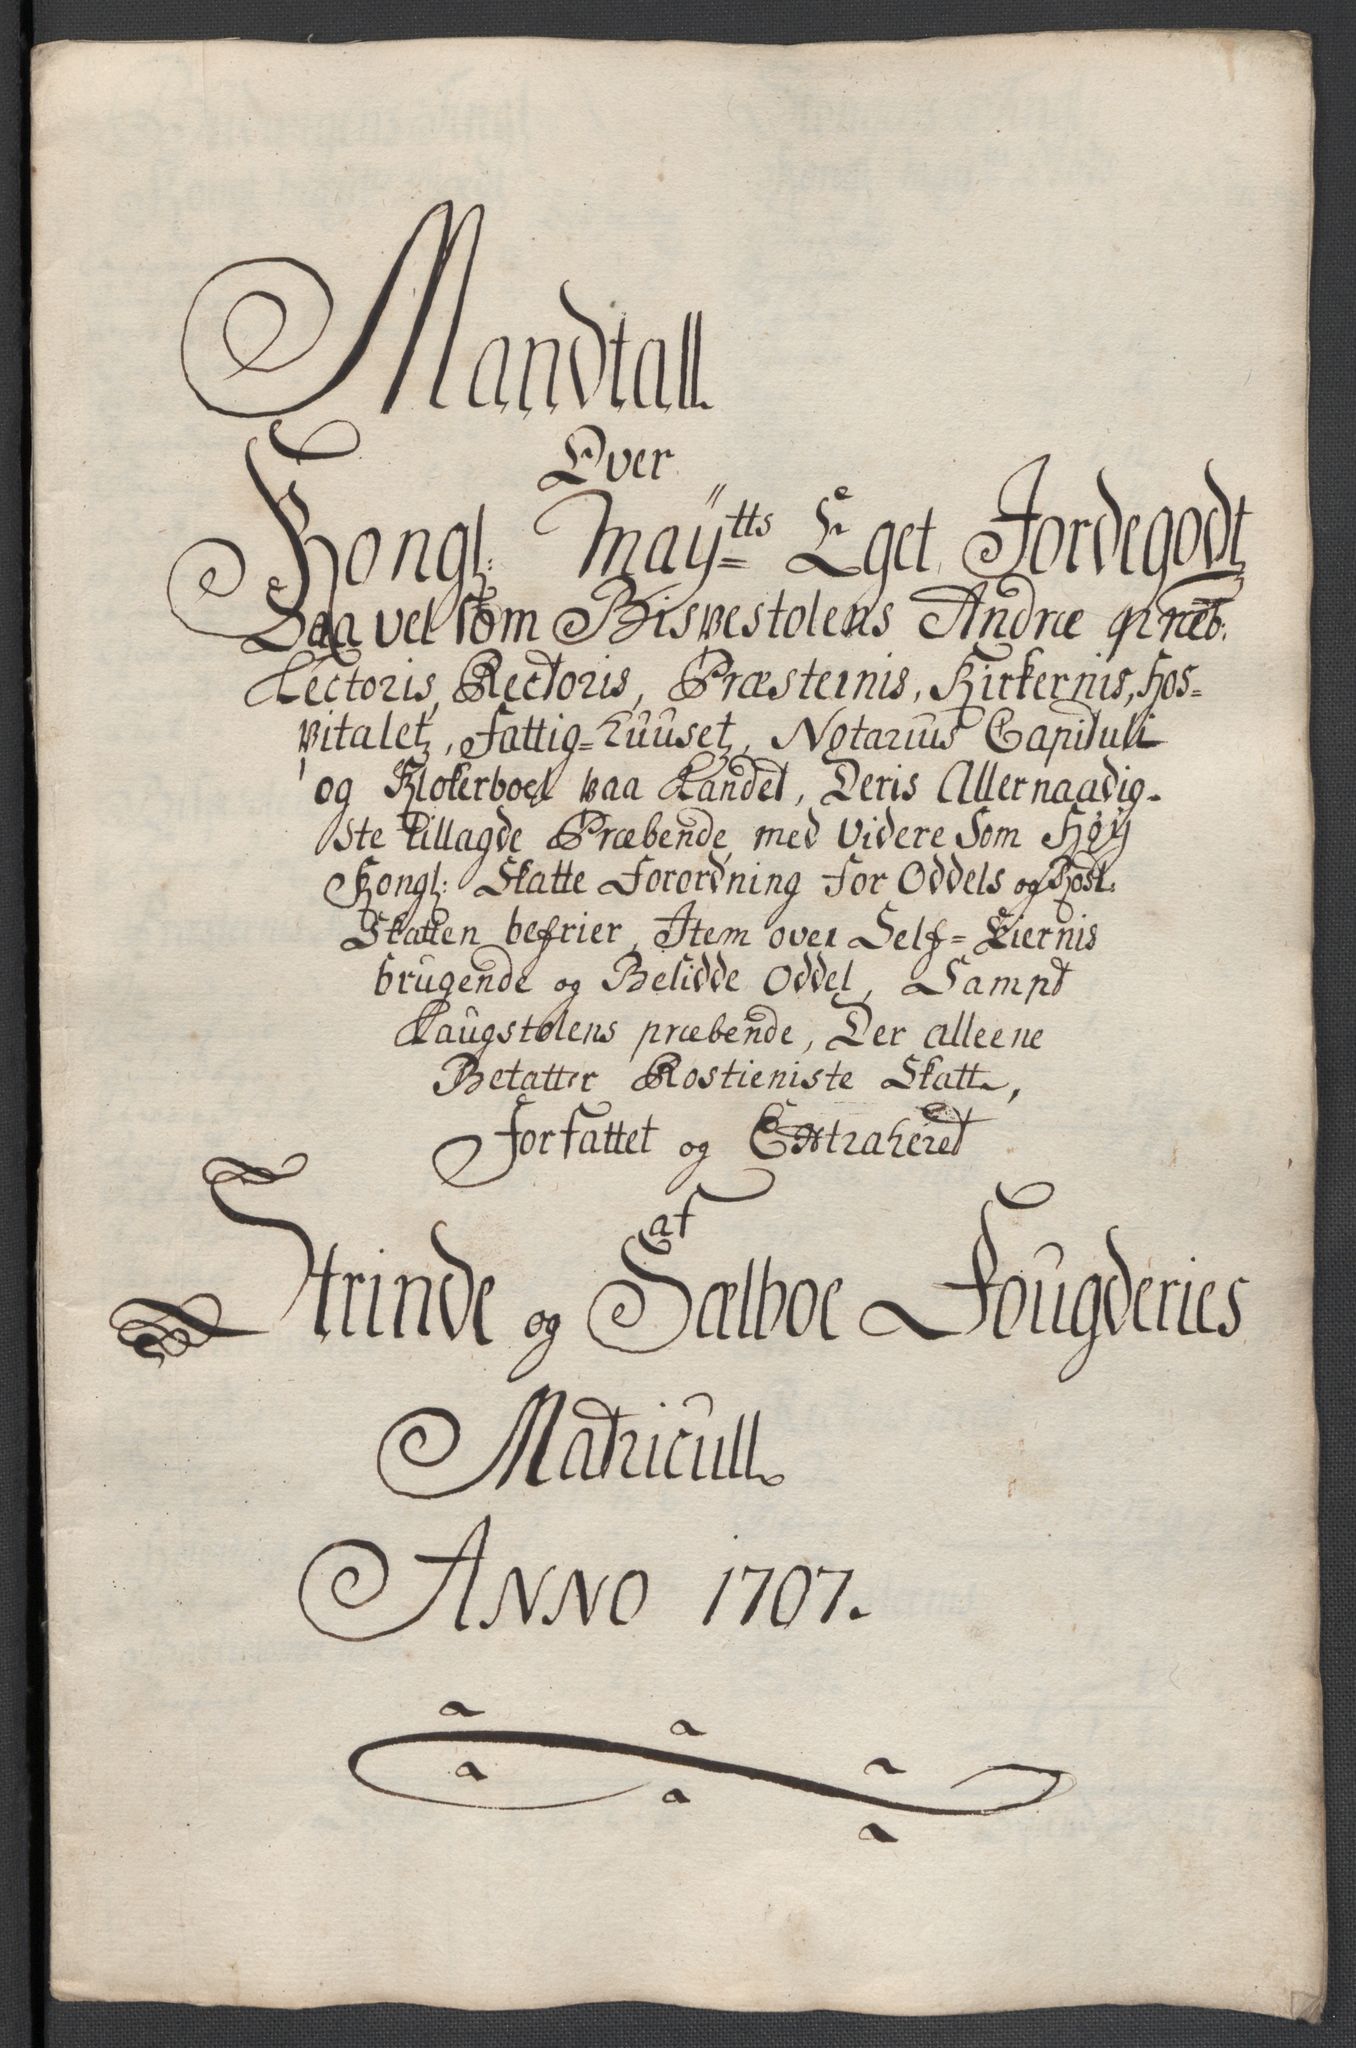 Mandtall
Over
Kongl: Maÿ=tts Eget Jordegodtz
Saa vel som Bispestolens Andræ Præb:
Lectoris, Rectoris, Præsternis, Kirkernis, Hos=
pitaletz, Fattig=huusetz, Notarius Capituli
og Klokerboel paa Landet, Deris Allernaadig=
ste tillagde Præbende med Videre Som Høÿ
Kongl: Skatte Forordning for Oddels og Rostt:
Skatten befrier, Item over Self=Eiernis
brugende og Besidde Oddel, Sampt
Laugstolens præbende, Der alleene
Betatter Rostieniste Skatt,
Forfattet og Extraheret
af
Strinde og Sælboe Fougderies
Matricull
ANNO 1707.